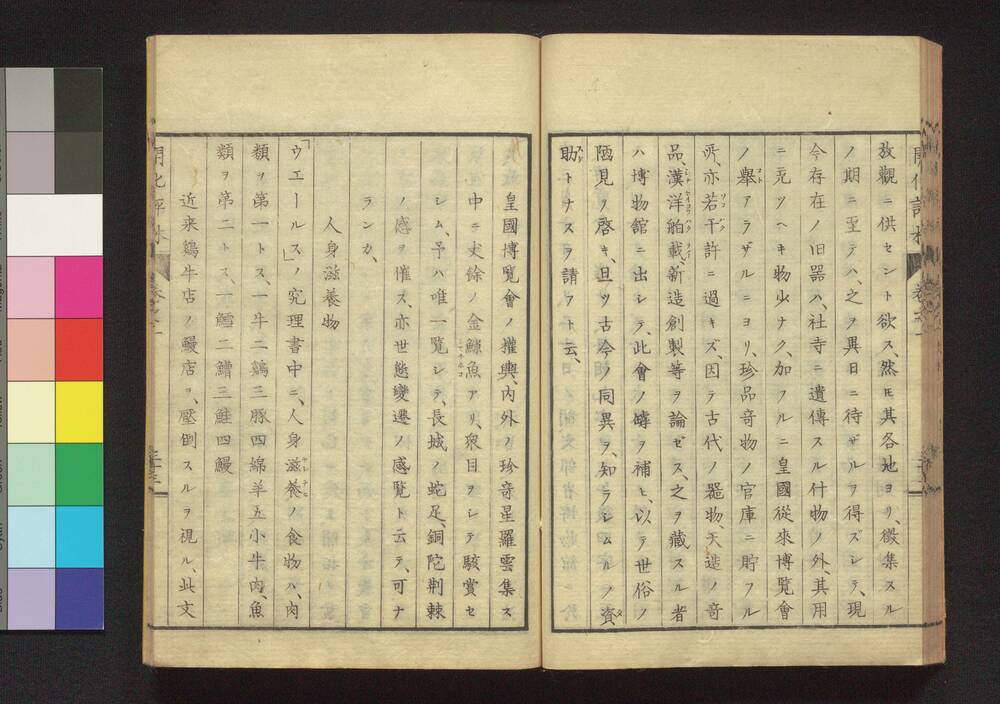 放觀ニ供セント欲ス、然𪜈其各地ヨリ、徴集スル
ノ期ニ至テハ、之ヲ異日ニ待ザルヲ得ズシテ、現
今存在ノ旧器ハ、社寺ニ遺傳スル什物ノ外、其用
ニ充ツヘキ物少ナク、加フルニ皇國從來博覽會
ノ舉アラザルニヨリ、珍品奇物ノ官庫ニ貯フル
所、亦若干許ニ過キズ、因テ古代ノ器物、天造ノ奇
品、漢洋舶載、新造創製等ヲ論ゼス、之ヲ藏スル者
ハ博物館ニ出シテ、此會ノ罅ヲ補ヒ、以テ世俗ノ
陋見ヲ啓キ、且ツ古今ノ同異ヲ、知ラシムルノ資
助トナスヲ請フト云、
皇國博覽會ノ權輿、内外ノ珍奇星羅雲集ス
中ニ丈餘ノ金鯱魚アリ、衆目ヲシテ駭賞セ
シム、予ハ唯一覽シテ、長城ノ蛇足、銅陀荆棘
ノ感ヲ催ス、亦世態變遷ノ感覽ト云テ、可ナ
ランカ、
人身滋養物
「ウエールス」ノ究理書中ニ、人身滋養ノ食物ハ、肉
類ヲ第一トス、一牛二鷄三豚四綿羊五小牛肉、魚
類ヲ第二トス、一鱈二鰽三鮭四鰻
近来鷄牛店ノ鰻店ヲ、壓倒スルヲ視ル、此文